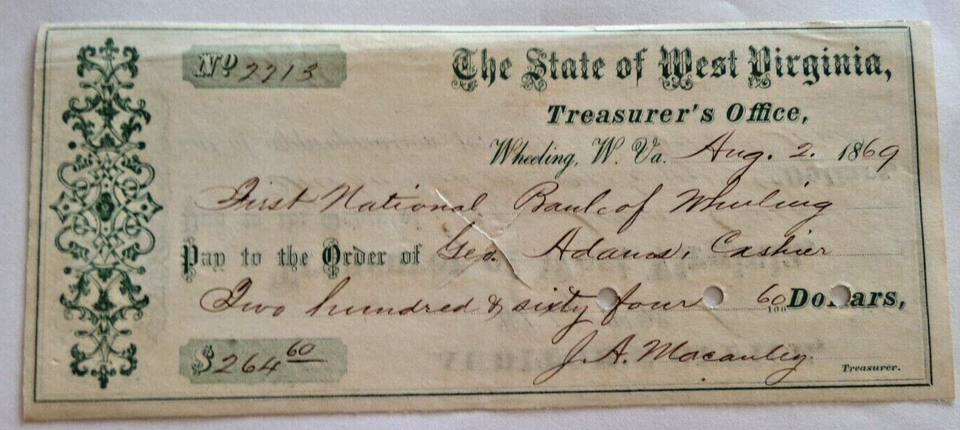 No 2213
The State of West Virginia,
Treasurer's Office,
Wheeling, W. Va. Aug. 2. 1869
First National Bank of Wheeling
Pay to the Order of Geo. Adams, Cashier
Two hundred & sixty four 60/100 Dollars,
$264 60
J. A. Macauley
Treasurer.